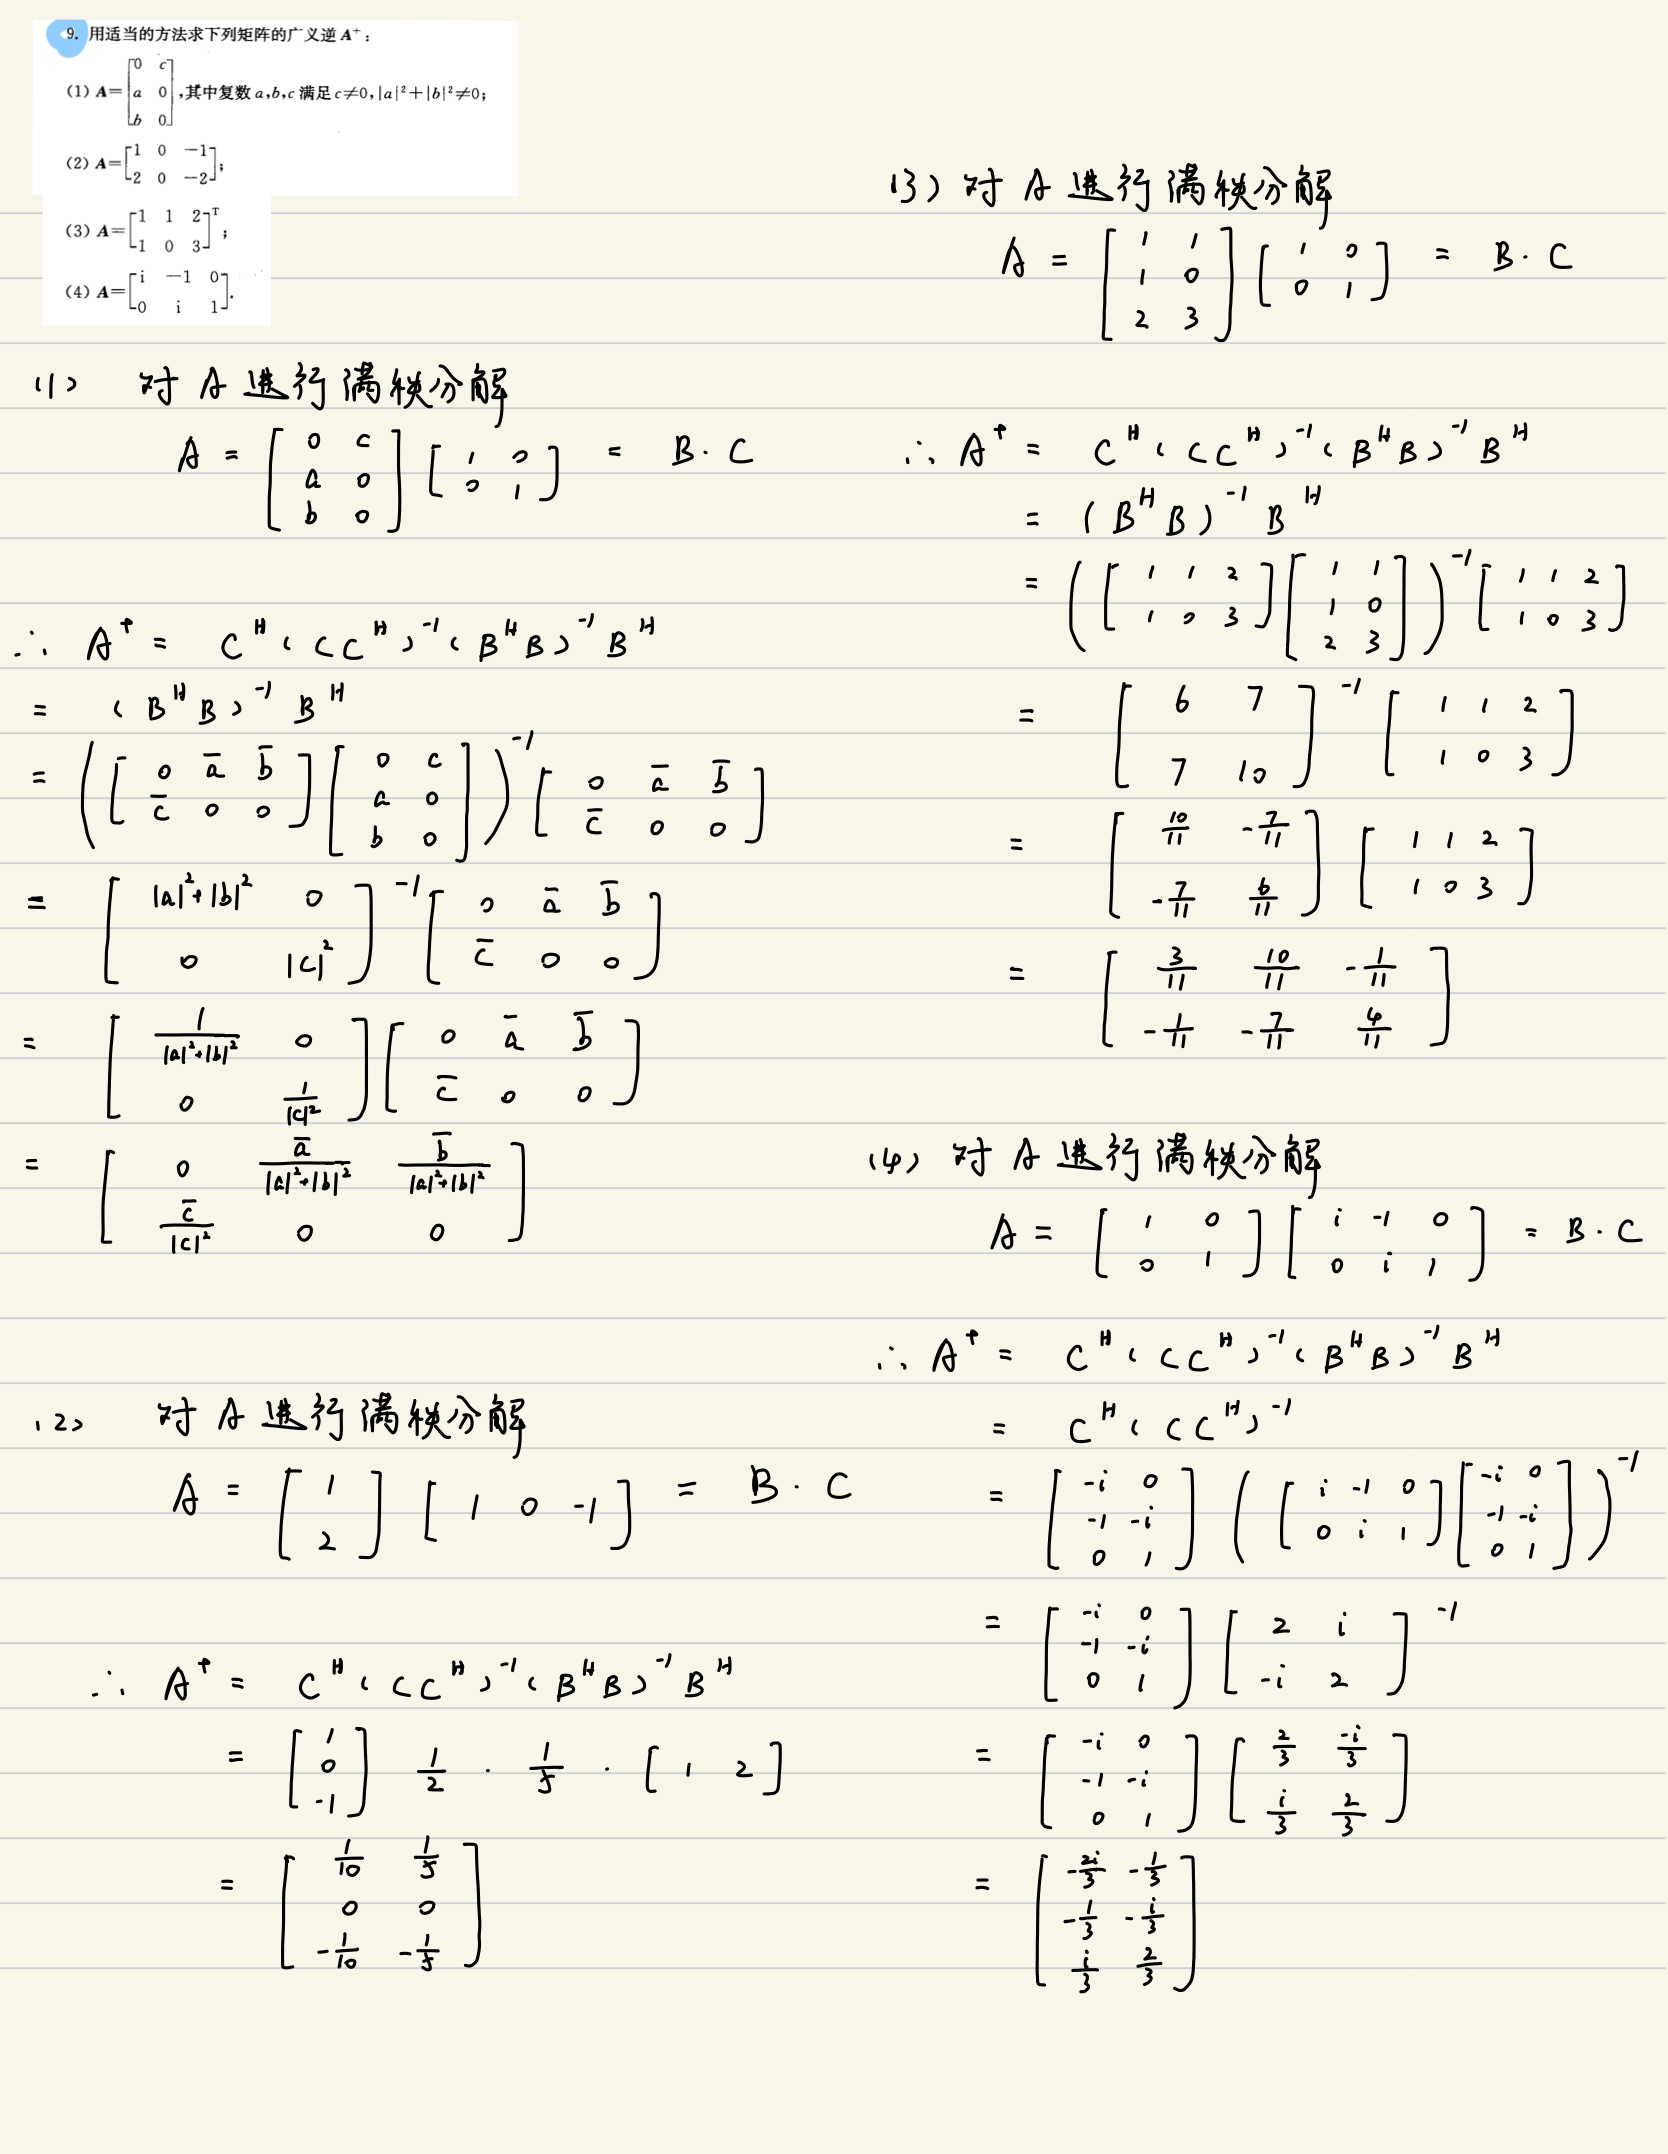 9. 用适当的方法求下列矩阵的广义逆 A⁺：
(1) A=[0 c; a 0; b 0],其中复数 a,b,c 满足 c≠0,|a|²+|b|²≠0;
(2) A=[1 0 −1; 2 0 −2];
(3) A=[1 1 2; 1 0 3]ᵀ;
(4) A=[i −1 0; 0 i 1].
(1) 对 A 进行满秩分解
A = [0 c; a 0; b 0] [1 0; 0 1] = B · C
∴ A⁺ = Cᴴ(CCᴴ)⁻¹(BᴴB)⁻¹Bᴴ
= (BᴴB)⁻¹Bᴴ
= ([0 a̅ b̅; c̅ 0 0] [0 c; a 0; b 0])⁻¹ [0 a̅ b̅; c̅ 0 0]
= [|a|²+|b|² 0; 0 |c|²]⁻¹ [0 a̅ b̅; c̅ 0 0]
= [1/(|a|²+|b|²) 0; 0 1/|c|²] [0 a̅ b̅; c̅ 0 0]
= [0 a̅/(|a|²+|b|²) b̅/(|a|²+|b|²); c̅/|c|² 0 0]
(2) 对 A 进行满秩分解
A = [1; 2] [1 0 -1] = B · C
∴ A⁺ = Cᴴ(CCᴴ)⁻¹(BᴴB)⁻¹Bᴴ
= [1; 0; -1] 1/2 · 1/5 · [1 2]
= [1/10 1/5; 0 0; -1/10 -1/5]
(3) 对 A 进行满秩分解
A = [1 1; 1 0; 2 3] [1 0; 0 1] = B · C
∴ A⁺ = Cᴴ(CCᴴ)⁻¹(BᴴB)⁻¹Bᴴ
= (BᴴB)⁻¹Bᴴ
= ([1 1 2; 1 0 3] [1 1; 1 0; 2 3])⁻¹ [1 1 2; 1 0 3]
= [6 7; 7 10]⁻¹ [1 1 2; 1 0 3]
= [10/11 -7/11; -7/11 6/11] [1 1 2; 1 0 3]
= [3/11 10/11 -1/11; -1/11 -7/11 4/11]
(4) 对 A 进行满秩分解
A = [1 0; 0 1] [i -1 0; 0 i 1] = B · C
∴ A⁺ = Cᴴ(CCᴴ)⁻¹(BᴴB)⁻¹Bᴴ
= Cᴴ(CCᴴ)⁻¹
= [-i 0; -1 -i; 0 1] ([i -1 0; 0 i 1] [-i 0; -1 -i; 0 1])⁻¹
= [-i 0; -1 -i; 0 1] [2 i; -i 2]⁻¹
= [-i 0; -1 -i; 0 1] [2/3 -i/3; i/3 2/3]
= [-2i/3 -1/3; -1/3 -i/3; i/3 2/3]